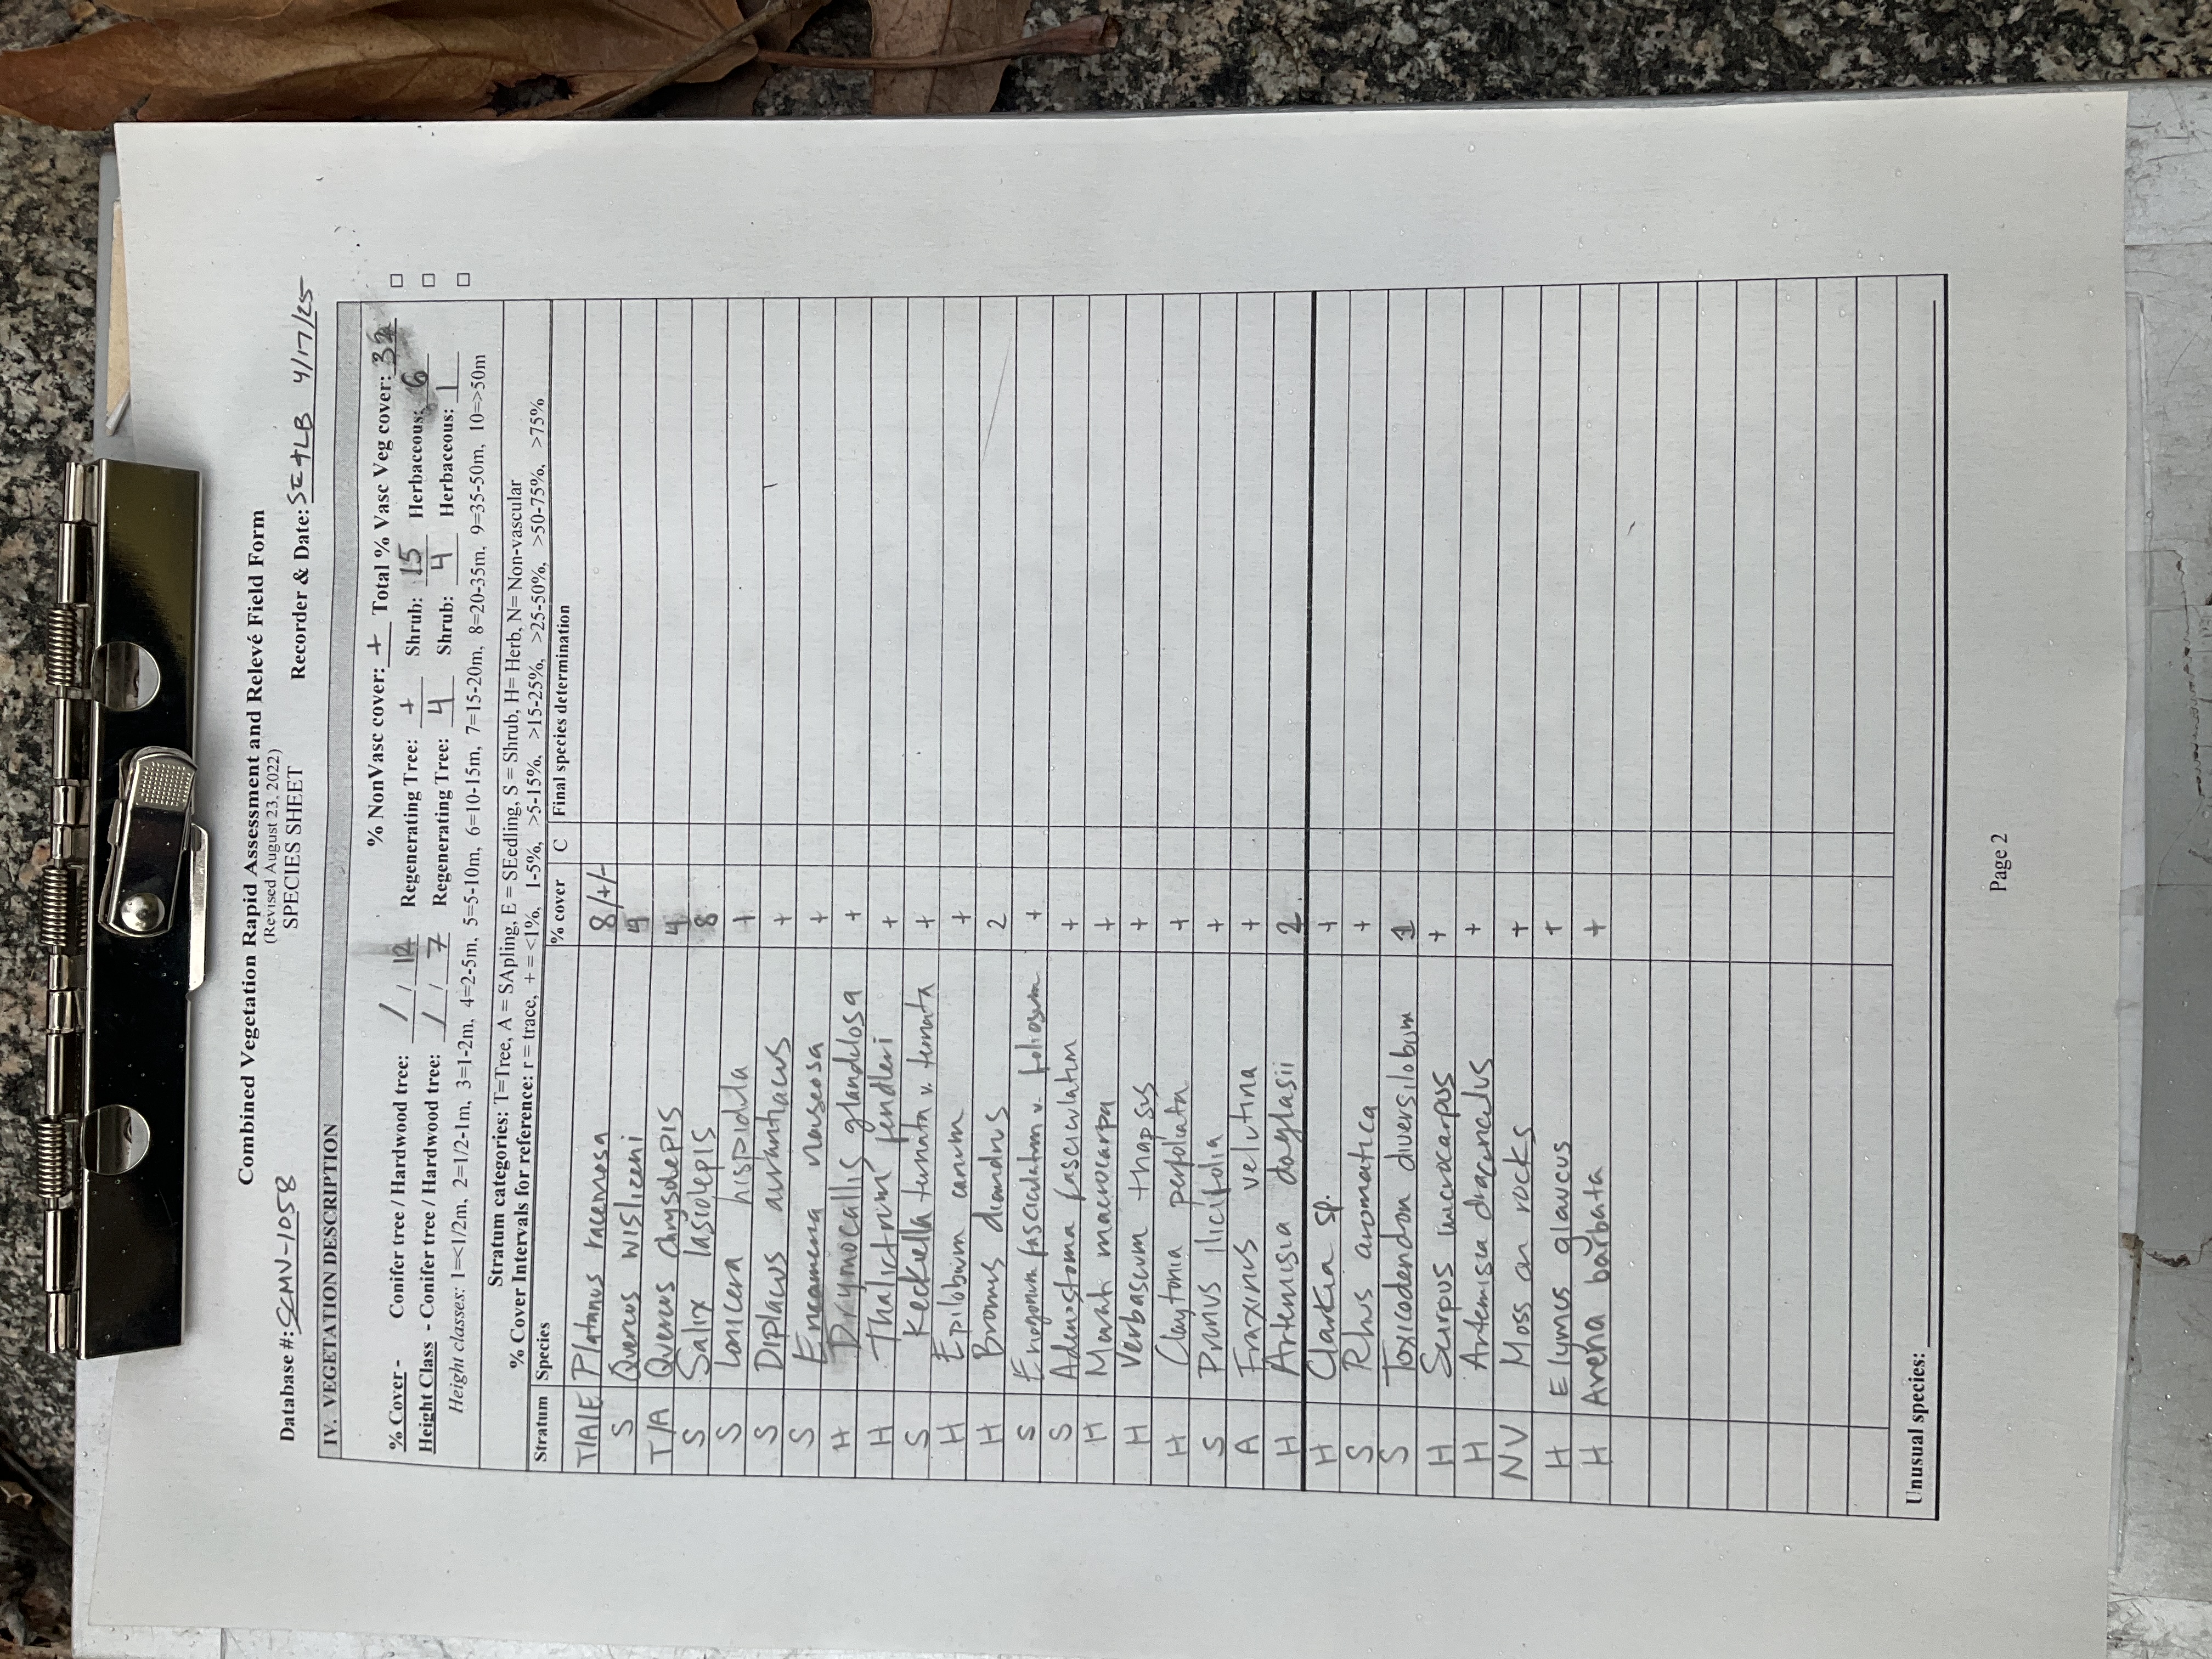 Combined Vegetation Rapid Assessment and Relevé Field Form
(Revised August 23, 2022)
SPECIES SHEET
Database #: SCMV-1058 Recorder & Date: SE+LB 4/17/25
IV. VEGETATION DESCRIPTION
% NonVasc cover: + Total % Vasc Veg cover: 32
% Cover - Conifer tree / Hardwood tree: / / 12 Regenerating Tree: + Shrub: 15 Herbaceous: 6
Height Class - Conifer tree / Hardwood tree: / / 7 Regenerating Tree: 4 Shrub: 4 Herbaceous: 1
Height classes: 1=<1/2m, 2=1/2-1m, 3=1-2m, 4=2-5m, 5=5-10m, 6=10-15m, 7=15-20m, 8=20-35m, 9=35-50m, 10=>50m
Stratum categories: T=Tree, A = SApling, E = SEedling, S = Shrub, H= Herb, N= Non-vascular
% Cover Intervals for reference: r = trace, + = <1%, 1-5%, >5-15%, >15-25%, >25-50%, >50-75%, >75%
Stratum Species % cover C Final species determination
T/A/E Platanus racemosa 8/+/-
S Quercus wislizeni
T/A Quercus chrysolepis 4
S Salix lasiolepis 8
S Lonicera hispidula +
S Diplacus aurantiacus +
S Ericameria nauseosa +
H Drymocallis glandulosa +
H Thalictrum fendleri +
S Keckiella ternata v. ternata +
H Epilobium canum +
H Bromus diandrus 2
S Eriogonum fasciculatum v. foliosum +
S Adenostoma fasciculatum +
H Marah macrocarpa +
H Verbascum thapsus +
H Claytonia perfoliata +
S Prunus ilicifolia +
A Fraxinus velutina +
H Artemisia douglasii 2
H Clarkia sp. +
S Rhus aromatica +
S Toxicodendron diversilobum 1
H Scirpus microcarpus +
H Artemisia dracunculus +
NV Moss on rocks +
H Elymus glaucus +
H Avena barbata +
Unusual species:
Page 2